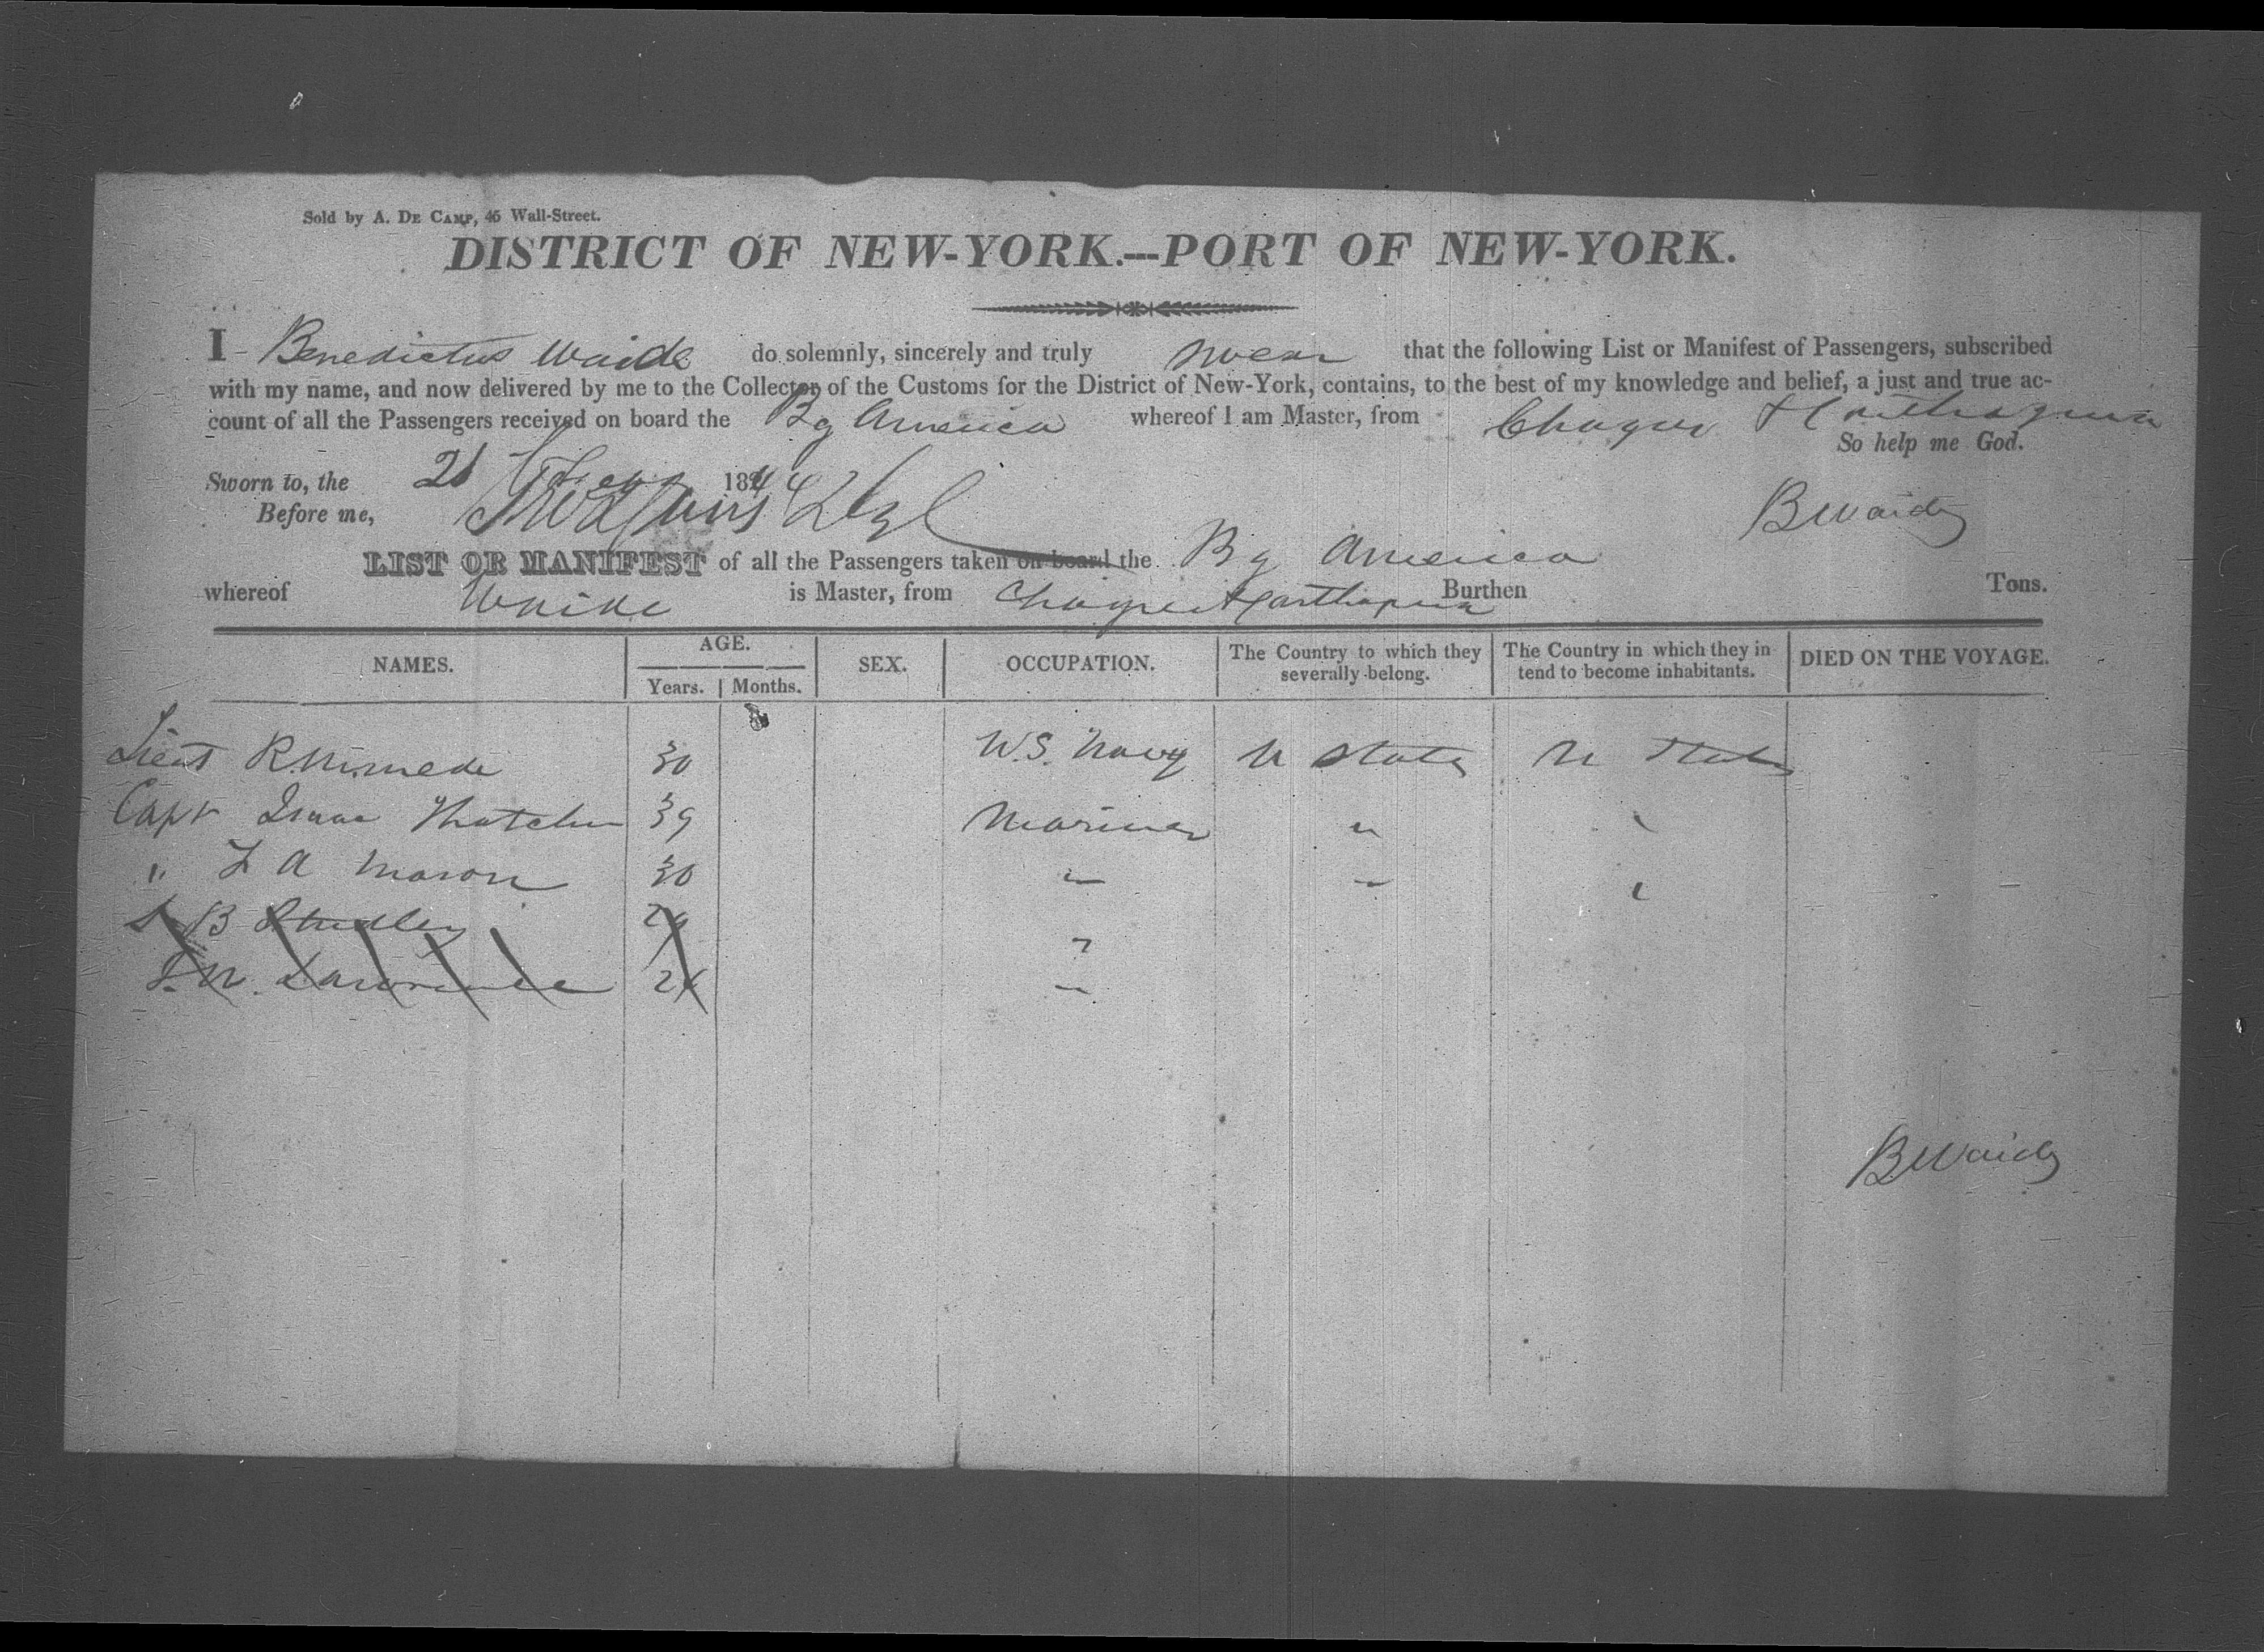 Sold by A. DE CAMP, 46 Wall-Street.
DISTRICT OF NEW-YORK.—PORT OF NEW-YORK.
I Benedictus Waide do solemnly, sincerely and truly swear that the following List or Manifest of Passengers, subscribed
with my name, and now delivered by me to the Collector of the Customs for the District of New-York, contains, to the best of my knowledge and belief, a just and true ac-
count of all the Passengers received on board the Bg America whereof I am Master, from Chagres & Carthagena
So help me God.
Sworn to, the 21 184
Before me,
B Waide
LIST OR MANIFEST of all the Passengers taken on board the Bg America
whereof Waide is Master, from Chagres & Carthagena Burthen Tons.
NAMES. AGE. SEX. OCCUPATION. The Country to which they severally belong. The Country in which they in tend to become inhabitants. DIED ON THE VOYAGE.
Years. Months.
Lieut R. 30 U.S. Navy U States U States
Capt Isaac Thatcher 39 Mariner " "
" F A Mason 30 " " "
B Studley 29 "
Lawrence 26 "
B Waide